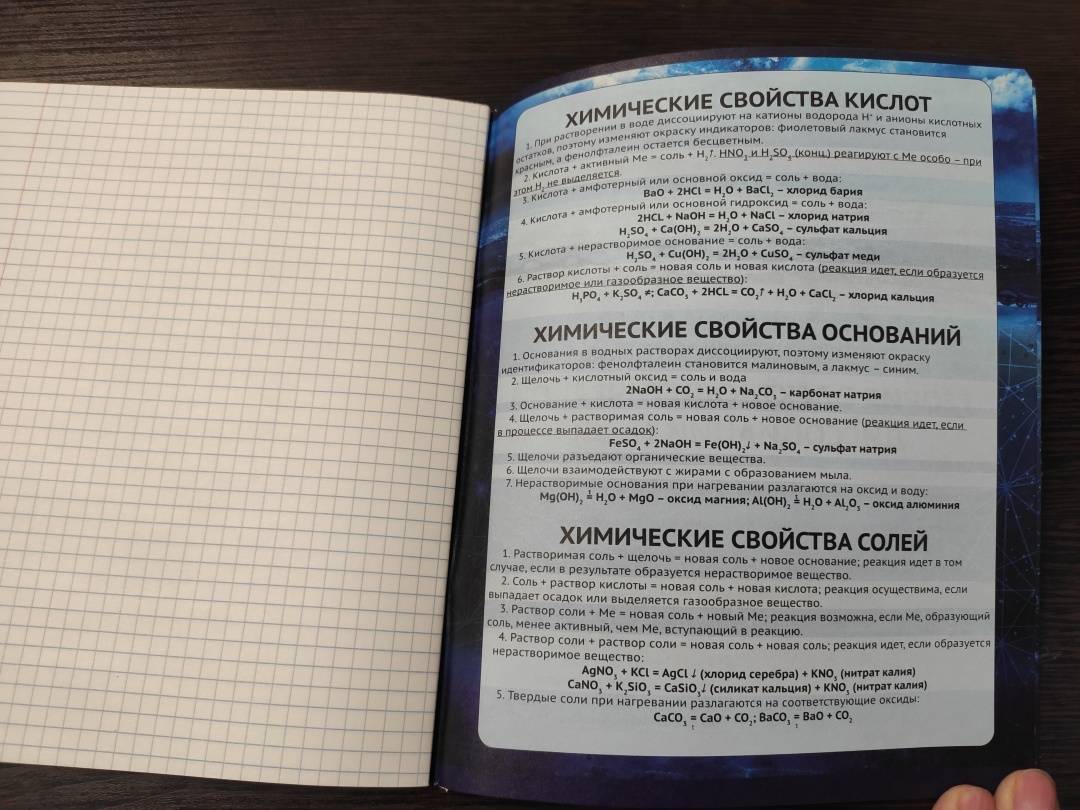 ХИМИЧЕСКИЕ СВОЙСТВА КИСЛОТ
1. При растворении в воде диссоциируют на катионы водорода H⁺ и анионы кислотных
остатков, поэтому изменяют окраску индикаторов: фиолетовый лакмус становится
красным, а фенолфталеин остается бесцветным.
2. Кислота + активный Ме = соль + H₂↑. HNO₃ и H₂SO₃ (конц.) реагируют с Ме особо – при
этом H₂ не выделяется.
3. Кислота + амфотерный или основной оксид = соль + вода:
BaO + 2HCl = H₂O + BaCl₂ – хлорид бария
4. Кислота + амфотерный или основной гидроксид = соль + вода:
2HCL + NaOH = H₂O + NaCl – хлорид натрия
H₂SO₄ + Ca(OH)₂ = 2H₂O + CaSO₄ – сульфат кальция
5. Кислота + нерастворимое основание = соль + вода:
H₂SO₄ + Cu(OH)₂ = 2H₂O + CuSO₄ – сульфат меди
6. Раствор кислоты + соль = новая соль и новая кислота (реакция идет, если образуется
нерастворимое или газообразное вещество):
H₃PO₄ + K₂SO₄ ≠; CaCO₃ + 2HCL = CO₂↑ + H₂O + CaCl₂ – хлорид кальция
ХИМИЧЕСКИЕ СВОЙСТВА ОСНОВАНИЙ
1. Основания в водных растворах диссоциируют, поэтому изменяют окраску
идентификаторов: фенолфталеин становится малиновым, а лакмус – синим.
2. Щелочь + кислотный оксид = соль и вода
2NaOH + CO₂ = H₂O + Na₂CO₃ – карбонат натрия
3. Основание + кислота = новая кислота + новое основание.
4. Щелочь + растворимая соль = новая соль + новое основание (реакция идет, если
в процессе выпадает осадок):
FeSO₄ + 2NaOH = Fe(OH)₂↓ + Na₂SO₄ – сульфат натрия
5. Щелочи разъедают органические вещества.
6. Щелочи взаимодействуют с жирами с образованием мыла.
7. Нерастворимые основания при нагревании разлагаются на оксид и воду:
Mg(OH)₂ =t H₂O + MgO – оксид магния; Al(OH)₂ =t H₂O + Al₂O₃ – оксид алюминия
ХИМИЧЕСКИЕ СВОЙСТВА СОЛЕЙ
1. Растворимая соль + щелочь = новая соль + новое основание; реакция идет в том
случае, если в результате образуется нерастворимое вещество.
2. Соль + раствор кислоты = новая соль + новая кислота; реакция осуществима, если
выпадает осадок или выделяется газообразное вещество.
3. Раствор соли + Ме = новая соль + новый Ме; реакция возможна, если Ме, образующий
соль, менее активный, чем Ме, вступающий в реакцию.
4. Раствор соли + раствор соли = новая соль + новая соль; реакция идет, если образуется
нерастворимое вещество:
AgNO₃ + KCl = AgCl ↓ (хлорид серебра) + KNO₃ (нитрат калия)
CaNO₃ + K₂SiO₃ = CaSiO₃↓ (силикат кальция) + KNO₃ (нитрат калия)
5. Твердые соли при нагревании разлагаются на соответствующие оксиды:
CaCO₃ =t CaO + CO₂; BaCO₃ =t BaO + CO₂